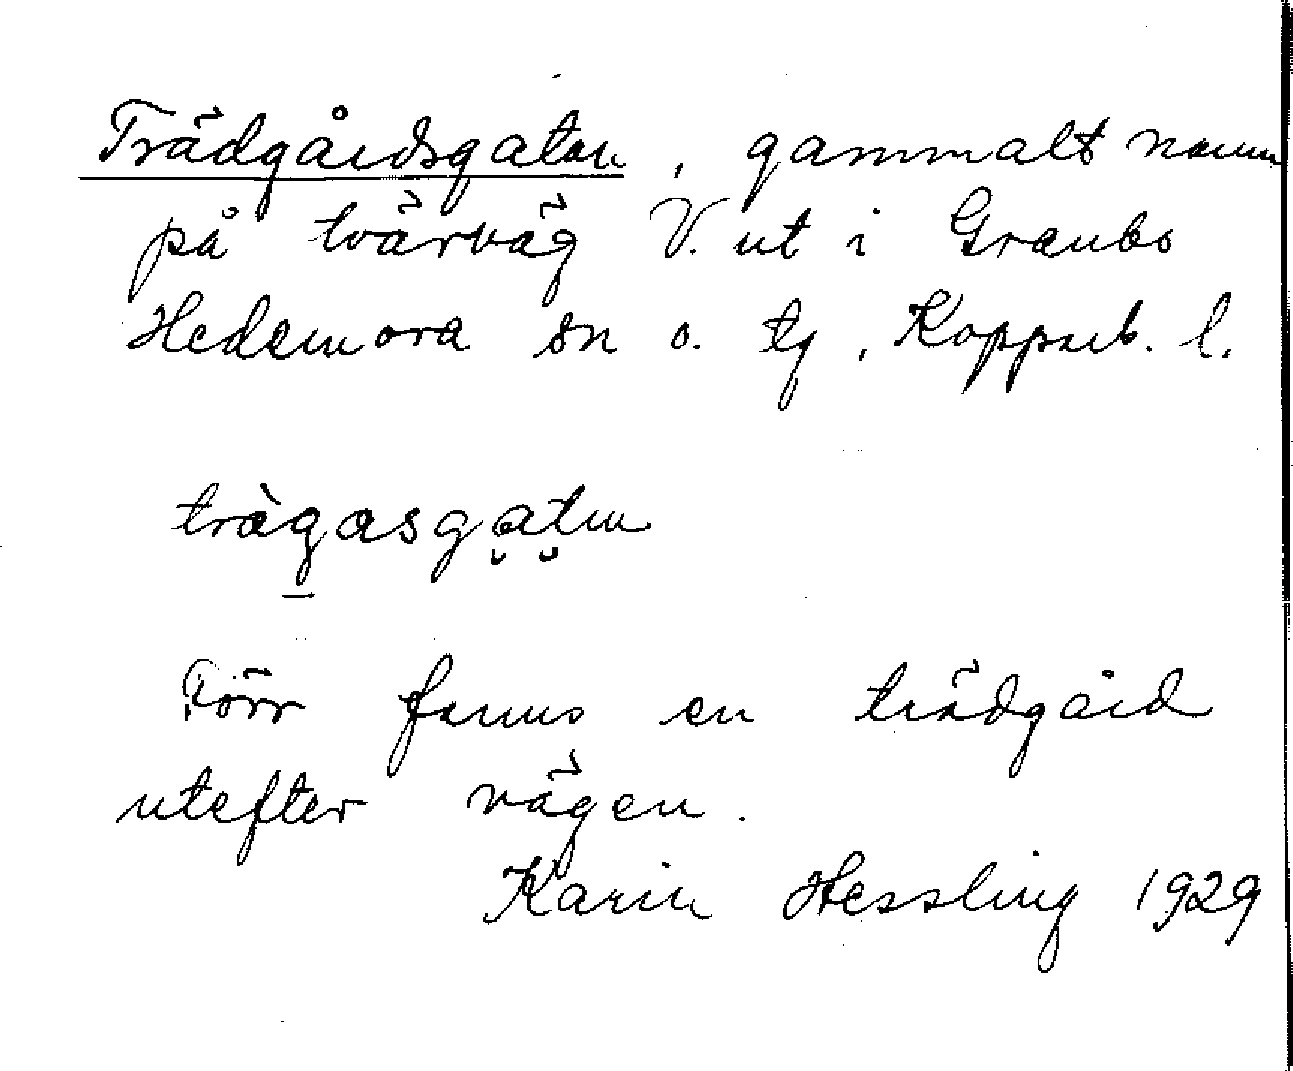 Trädgårdsgatan, gammalt namn
på tvärväg V. ut i Graubo
Hedemora sn o. tg, Kopparb. l.
tràgasgatn
Förr fanns en trädgård
utefter vägen.
Karin Hessling 1929